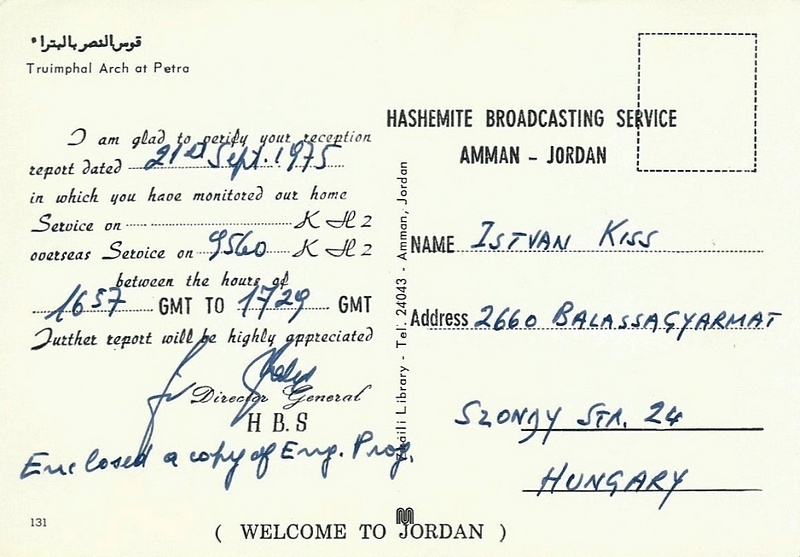 قوس النصر بالبتراء •
Truimphal Arch at Petra
I am glad to verify your reception
report dated 21st Sept. 1975
in which you have monitored our home
Service on K H 2
overseas Service on 9560 K H 2
between the hours of
1657 GMT TO 1729 GMT
Further report will be highly appreciated
Director General
H B. S
Enclosed a copy of Eng. Prog.
131
Library - Tel. 24043 - Amman, Jordan
HASHEMITE BROADCASTING SERVICE
AMMAN - JORDAN
NAME ISTVAN KISS
Address 2660 BALASSAGYARMAT
SZONDY STR. 24
HUNGARY
( WELCOME TO JORDAN )